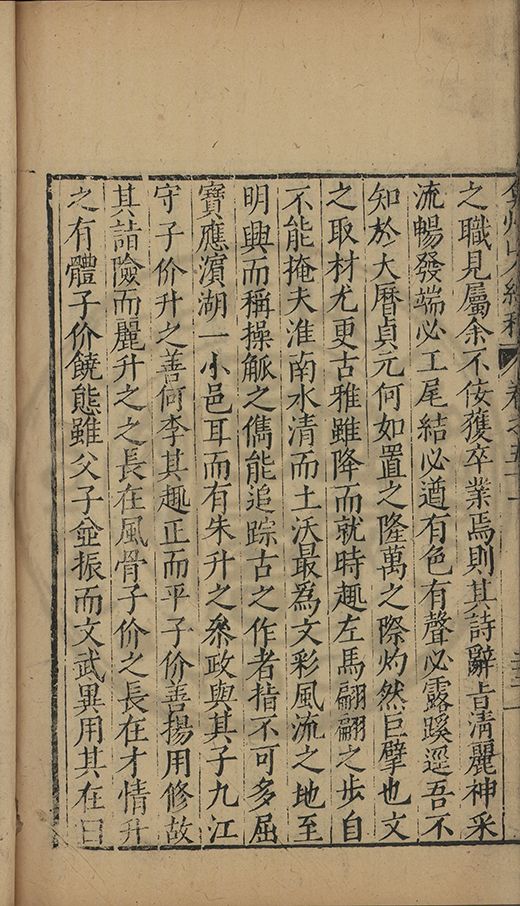 弇州山人續稿 卷之五十一
之職見屬余不佞獲卒業焉則其詩辭旨清麗神采
流暢發端必工尾結必遒有色有聲必露蹊逕吾不
知於大曆貞元何如置之隆萬之際灼然巨擘也文
之取材尤更古雅雖降而就時趣左馬翩翩之步自
不能掩夫淮南水清而土沃最為文彩風流之地至
明興而稱操觚之儁能追踪古之作者指不可多屈
寶應濵湖一小邑耳而有朱升之叅政與其子九江
守子价升之善何李其趣正而平子价善揚用修故
其詣險而麗升之之長在風骨子价之長在才情升
之有體子价饒態雖父子並振而文武異用其在日